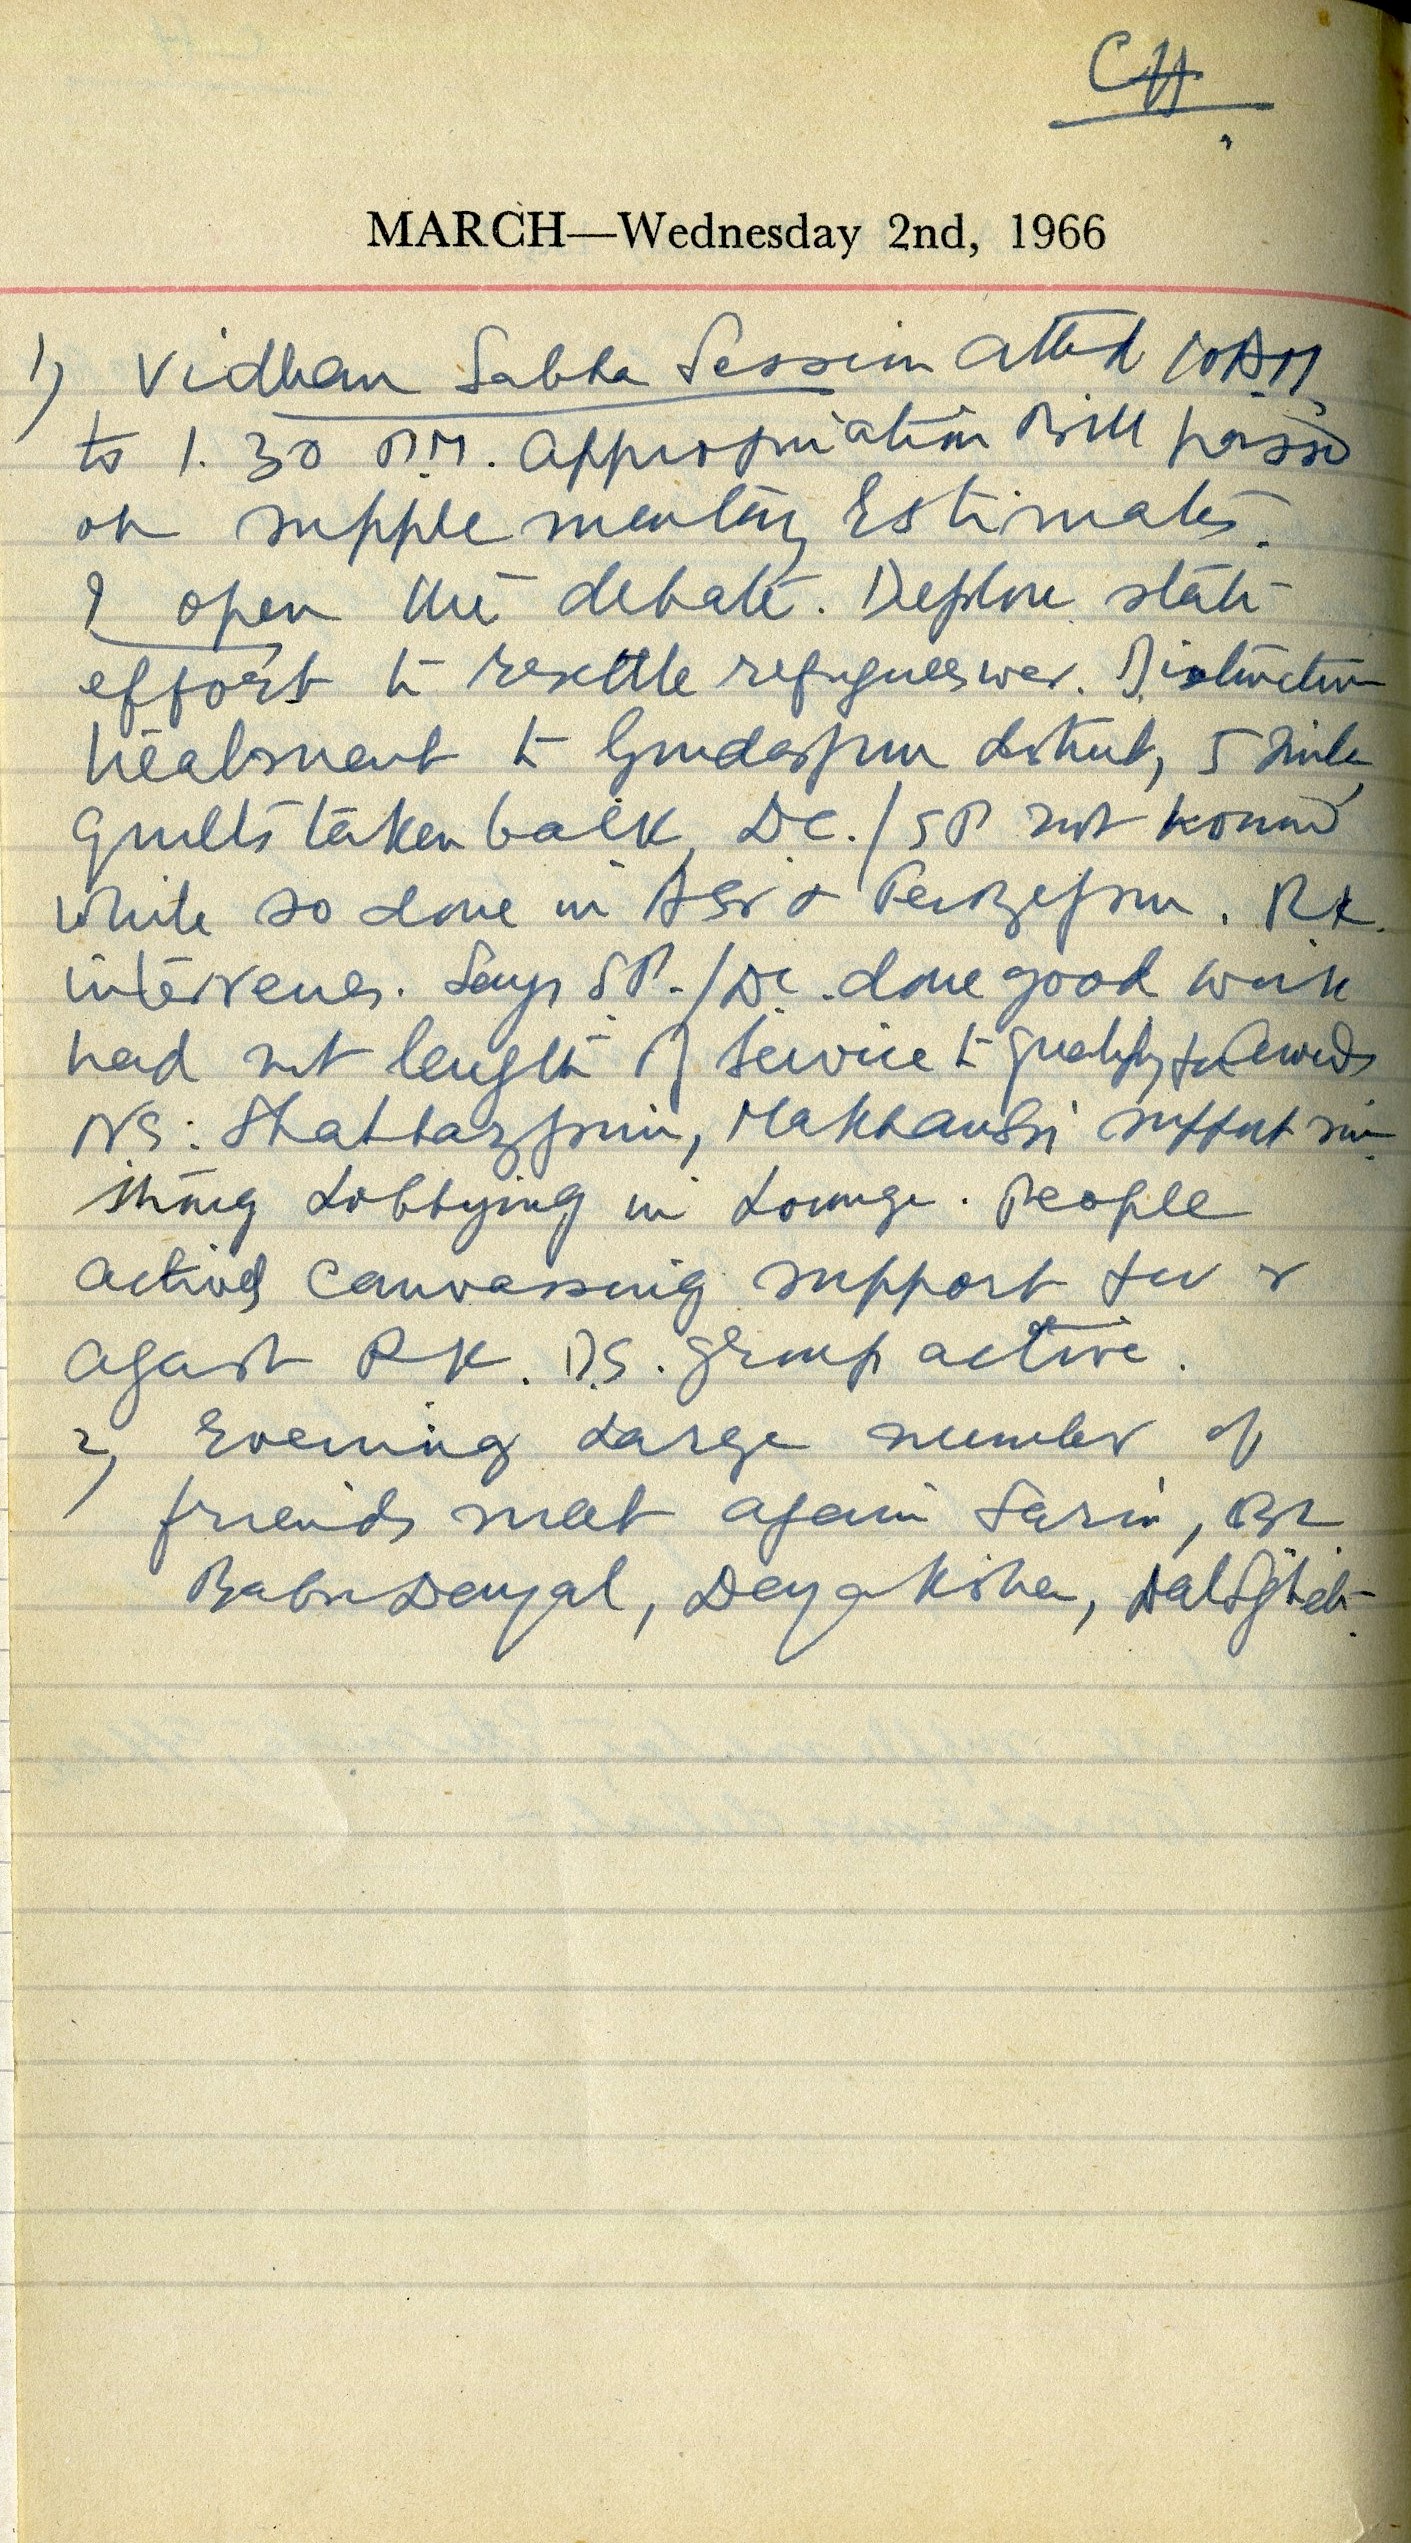 CH
MARCH—Wednesday 2nd, 1966
1) Vidhan Sabha Session attend 10 AM
to 1.30 P.M. Appropriation Bill passed
on supplementary Estimates.
I open the debate. Deplore state
effort to resettle refugees war. Distinction
treatment to Gurdaspur district, 5 miles,
quilts taken back, D.C./SP not honoured
while so done in ASR & Ferozepur. R.K.
intervenes. Says S.P./D.C. done good work
had not length of service to qualify for Awards
NS: Shahbazpuri, support
strong Lobbying in Lounge. People
active canvassing support for &
against RK. D.S. group active.
2) Evening Large number of
friends meet again Sarin,
Babu Dayal, Daya Kishan,